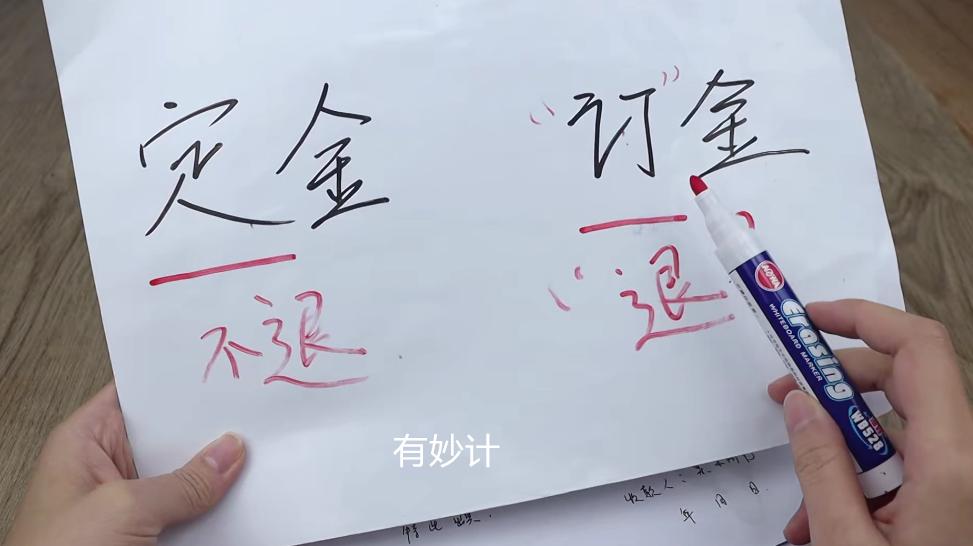 定金 “订”金
不退 “退”
AOWA
Erasing
WHITEBOARD MARKER
WB528
有妙计
收款人：
年 月 日.